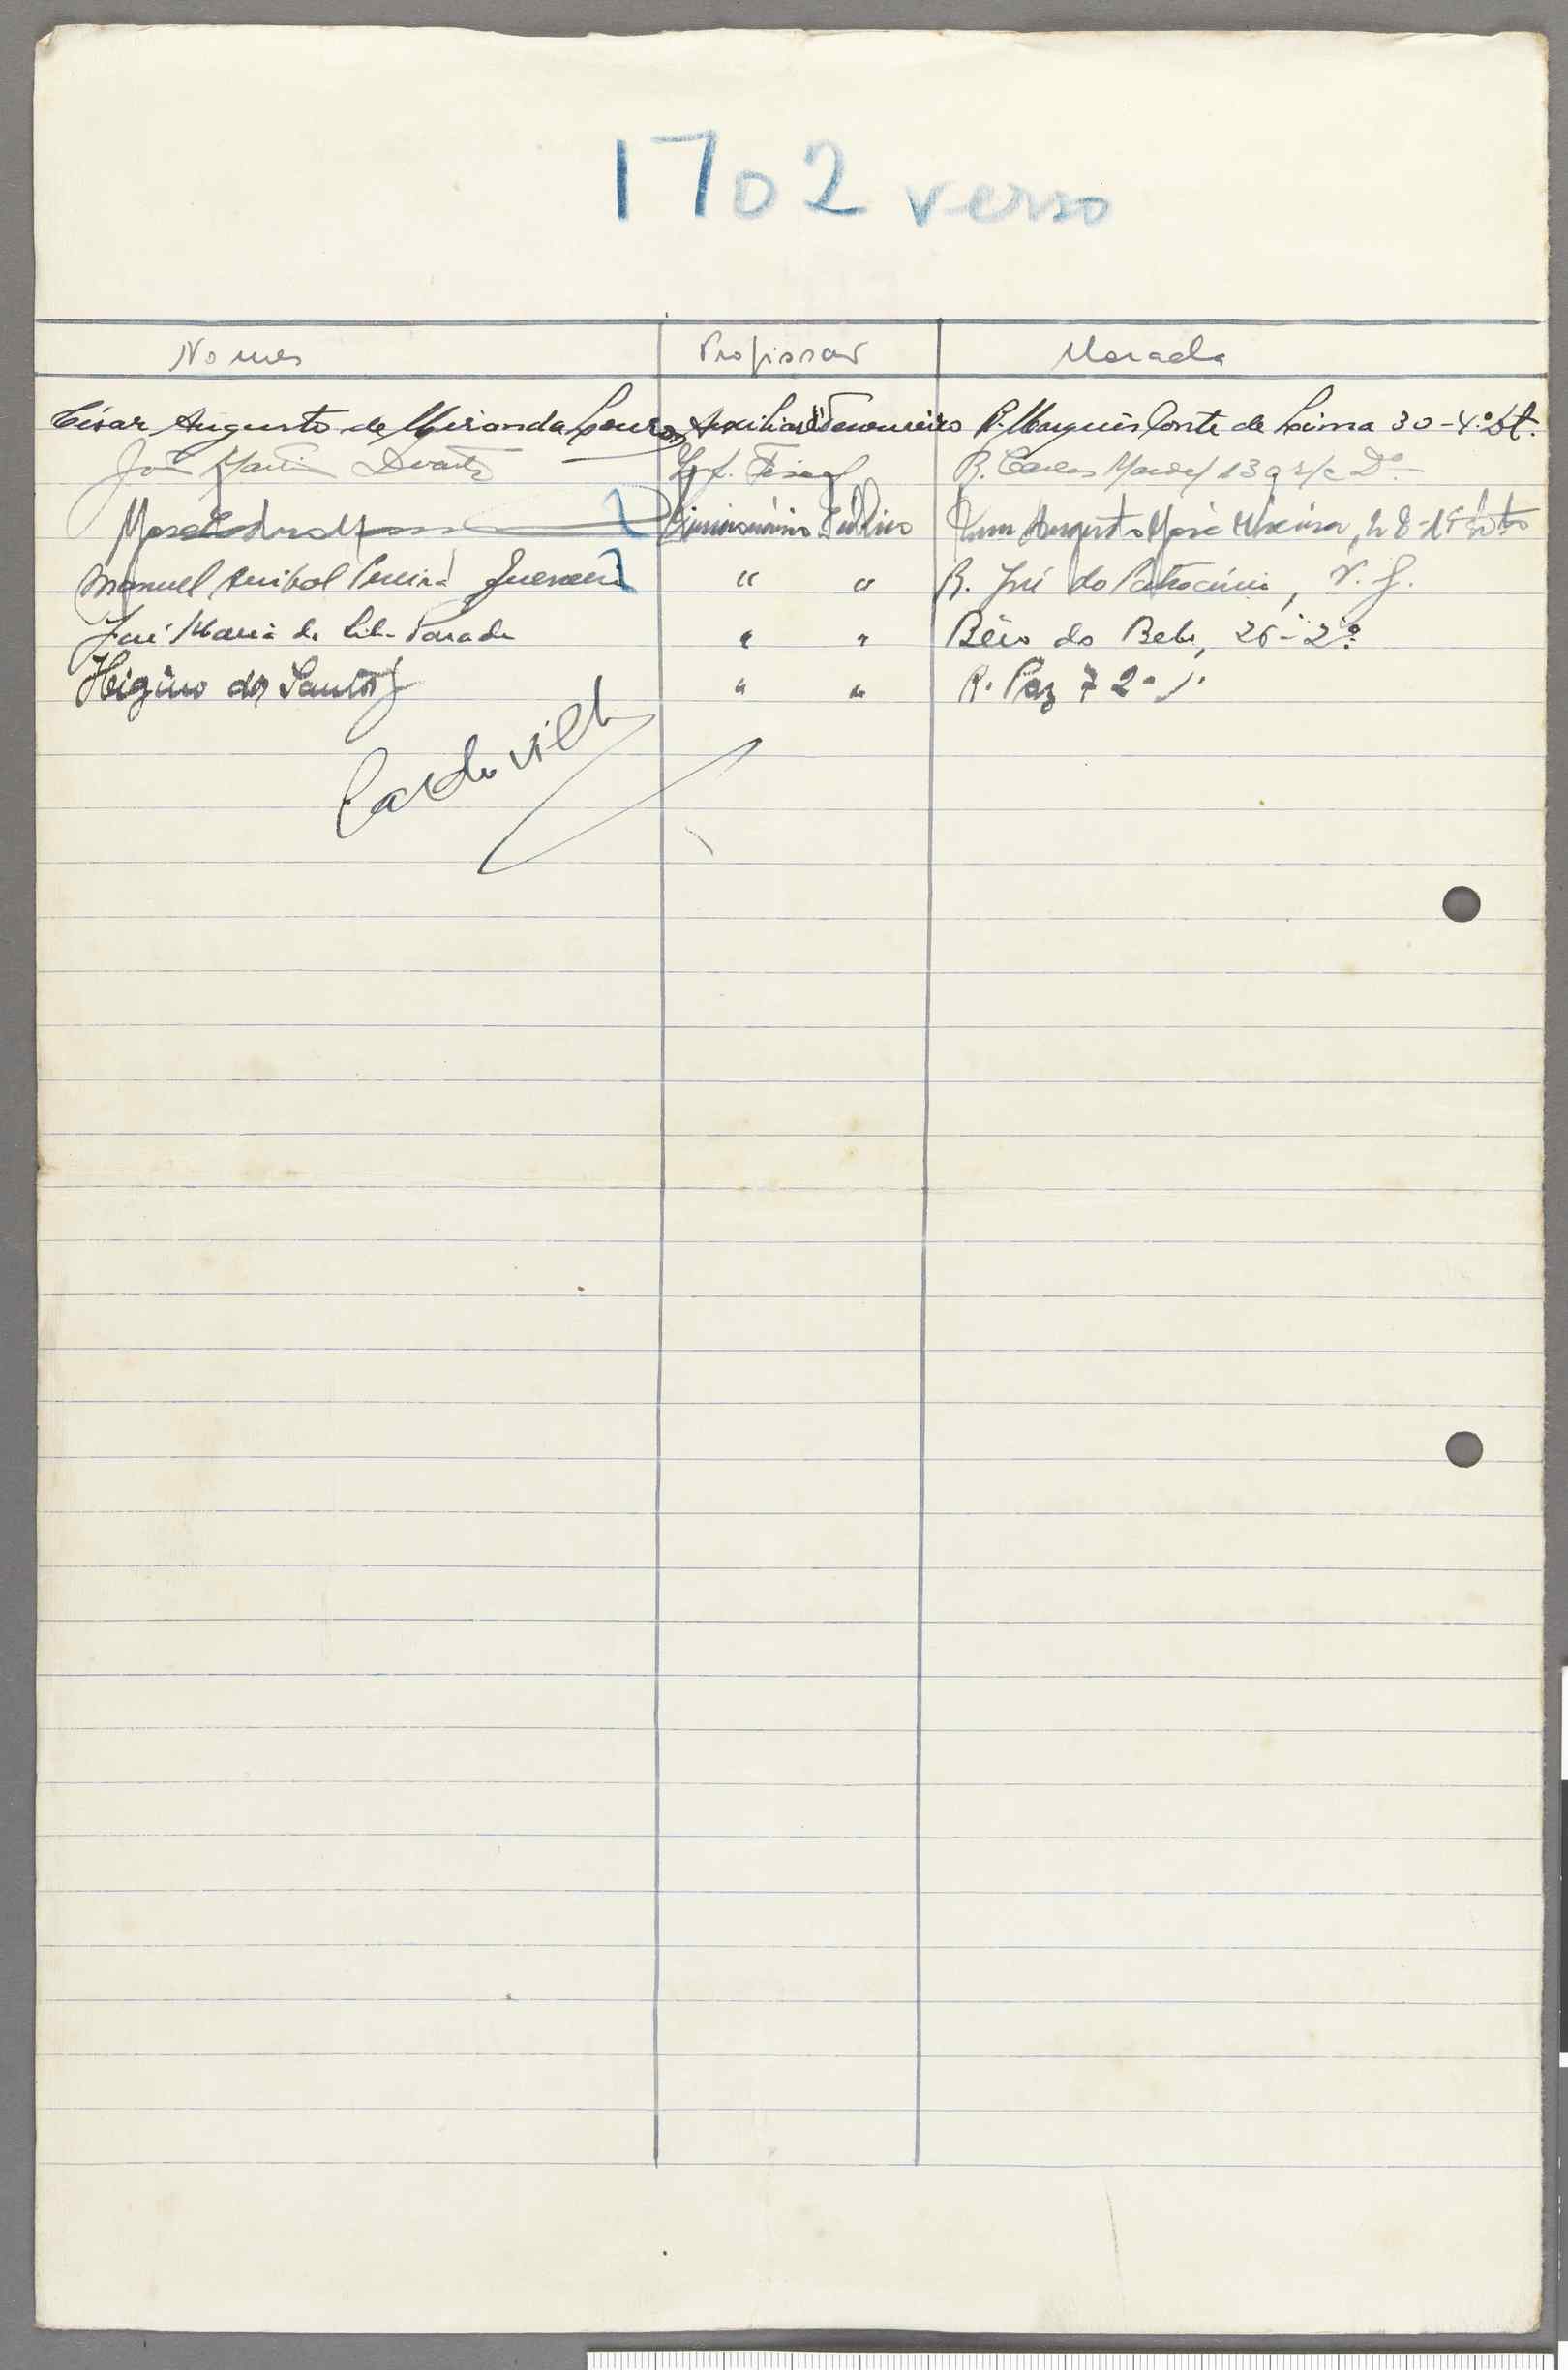 1702 verso
Nomes Profissão Morada
César Augusto de Miranda Auxiliar Tesoureiro R. Marquês Ponte de Lima 30-4º Dt.
João Martins Duarte Fiscal R. Carlos Mardel 13 r/c Dº
Funcionário Público Rua Augusto José Vieira, 28-1º
Manuel Anibal Pereira " " R. José do Patrocinio, V. J.
José Maria da Silva Parada " " Bêco do Belo, 26-2º
Higino dos Santos " " R. Paz 7 2º